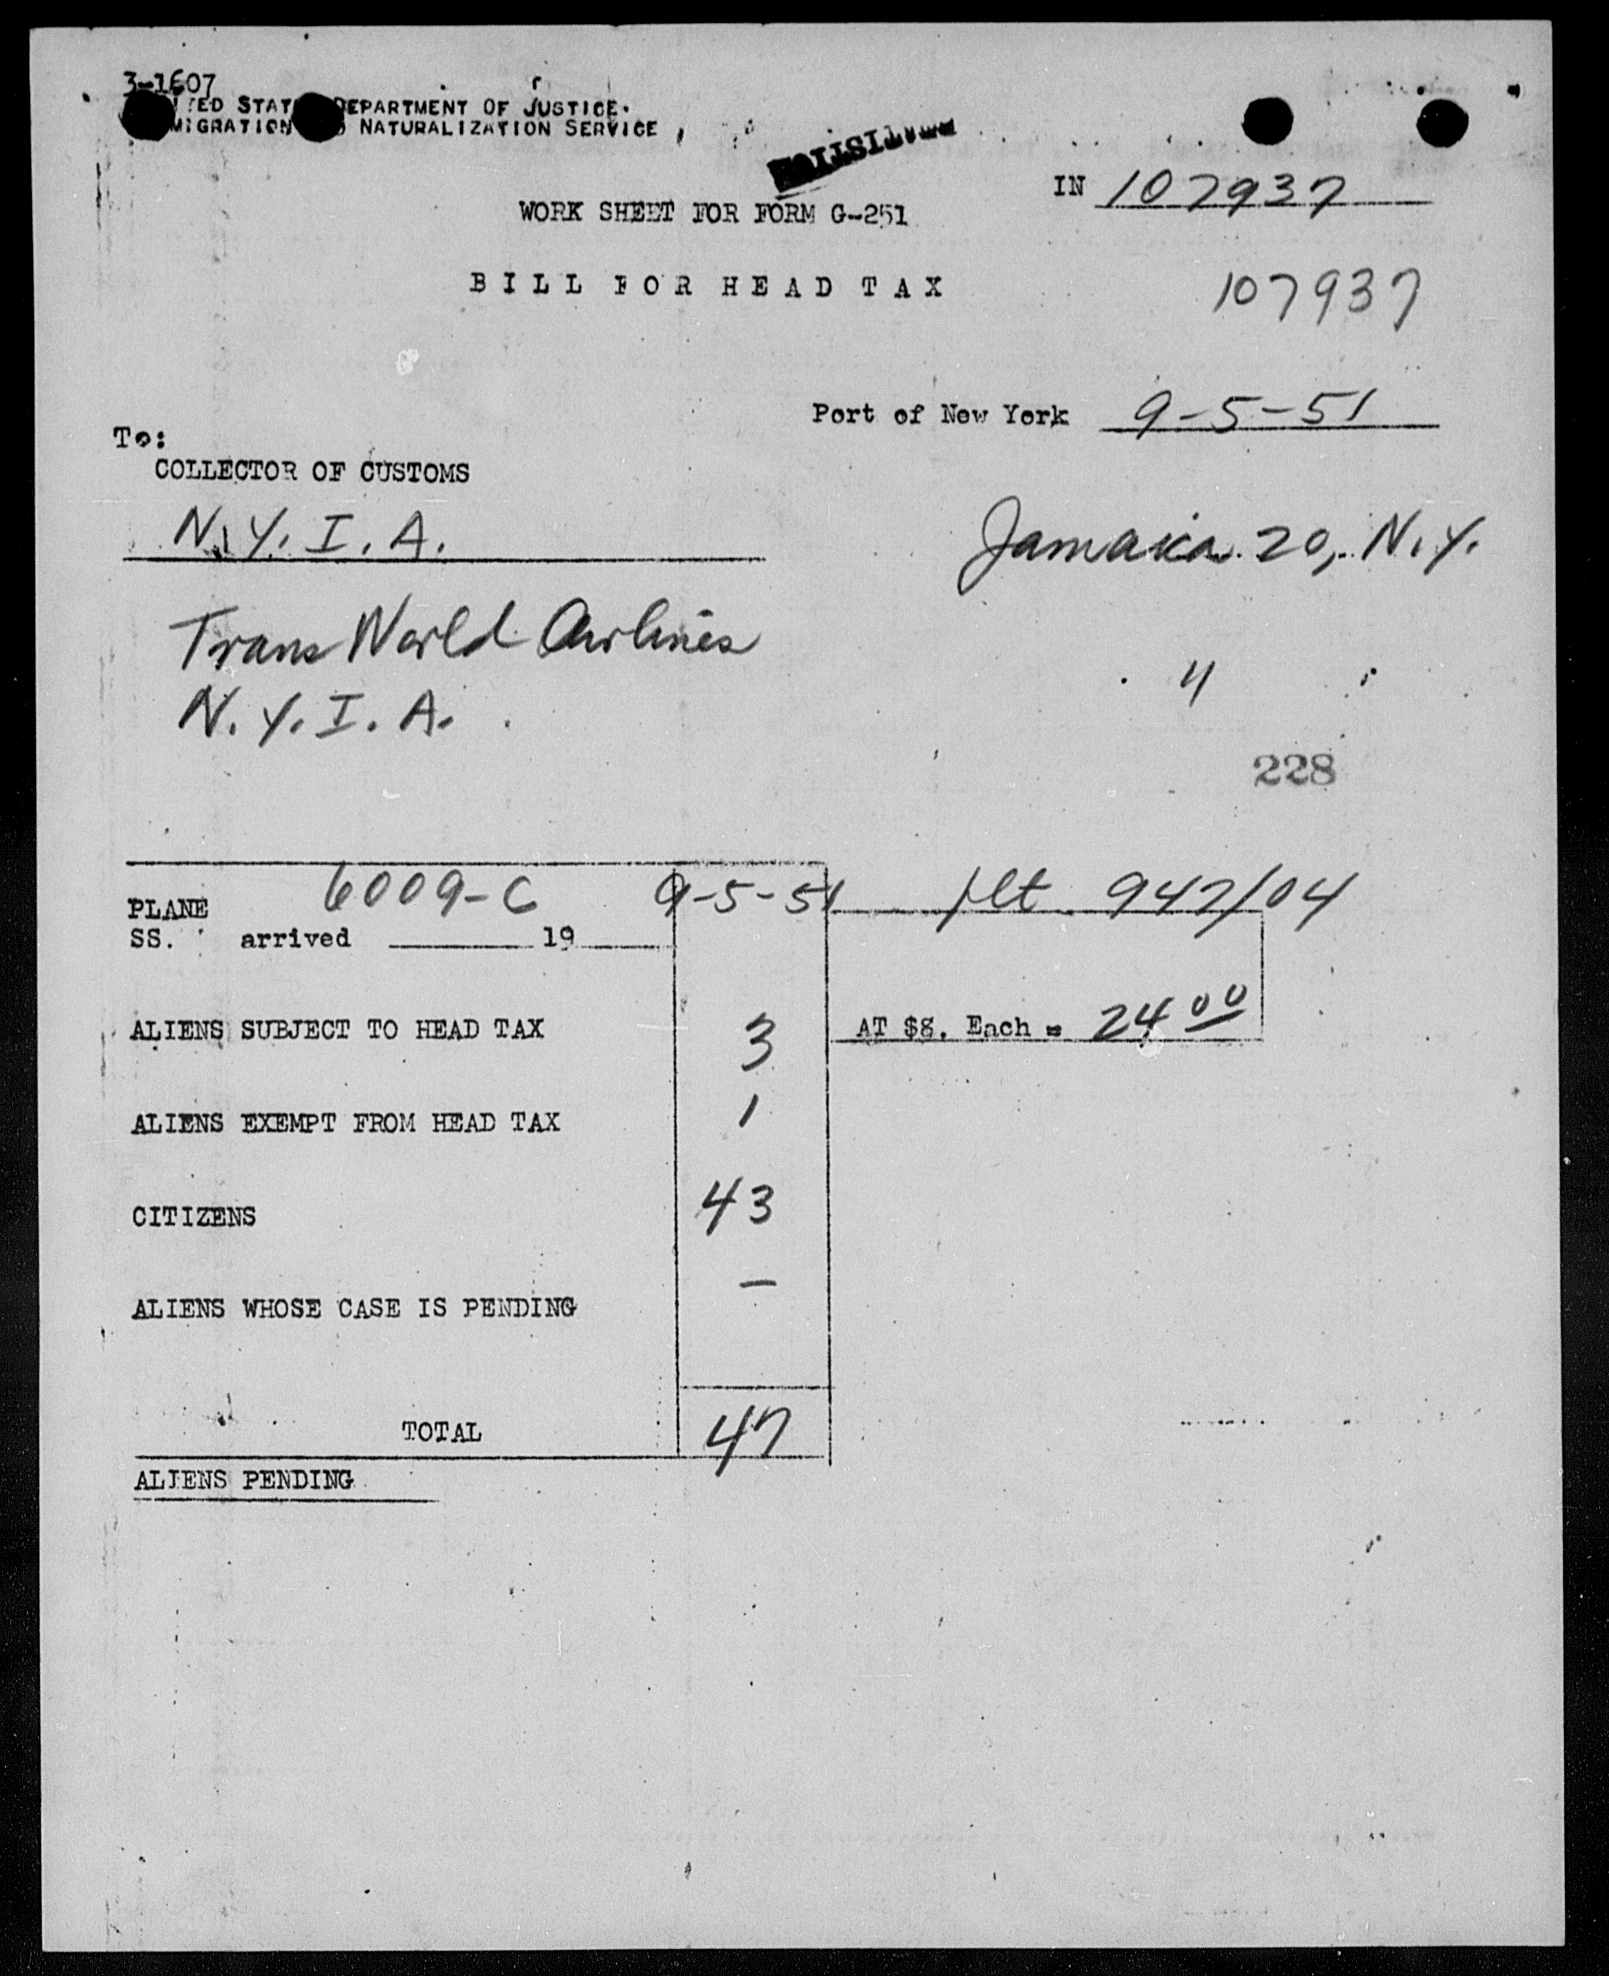 3-1607
STAT DEPARTMENT OF JUSTICE.
NATURALIZATION SERVICE
IN 107937
WORK SHEET FOR FORM G-251
BILL FOR HEAD TAX
107937
Port of New York 9-5-51
To:
COLLECTOR OF CUSTOMS
N.Y.I.A. Jamaica 20, N.Y.
Trans World Airlines
N.Y.I.A. "
228
PLANE 6009-C 9-5-51 flt 947/04
SS. arrived 19
ALIENS SUBJECT TO HEAD TAX 3 AT $8. Each = 24 00
ALIENS EXEMPT FROM HEAD TAX 1
CITIZENS 43
ALIENS WHOSE CASE IS PENDING —
TOTAL 47
ALIENS PENDING